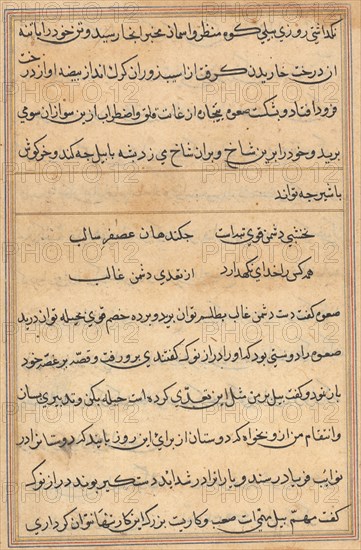 نکداشتی روزی پیلی کوه منظر و اسمان مخبر انجا رسید و تن خود را بانه
از درخت خاریدن گرفت از اسیب زور ان کرک انداز بیضه او از درخت
فرود افتاد و شکست صعوه بیچاره از غایت قلق و اضطراب ازین سو ازان سو می
پرید و خود را برین شاخ و بران شاخ می زد پشه با پیل چه کند و خرکوش
با شیر چه تواند
نخشبی دشمن قوی تهدات
جکند هان عصفر سالب
همه کس را خدای نکهدارد
از تعدی دشمن غالب
صعوه کفت دست دشمن غالب بطلسم توان برد و پرده خصم قوی بحیله توان درید
صعوه را دوستی بود که او را دراز نوک کفتندی برو رفت و قصه پر غصه خود
باز نمود و کفت پیل بر من مثل این تعدی کرده است حیله بکن و تدبیری بساز
و انتقام من ازو بخواه که دوستان از برای این روز بایند که دوستانرا در
نوایب فریاد رسند و یارانرا در شداید دستکیر بوند دراز نوک
کفت مهم پیل مهمی است صعب و کاریست بزرک این کار تنها نتوان کرد اری